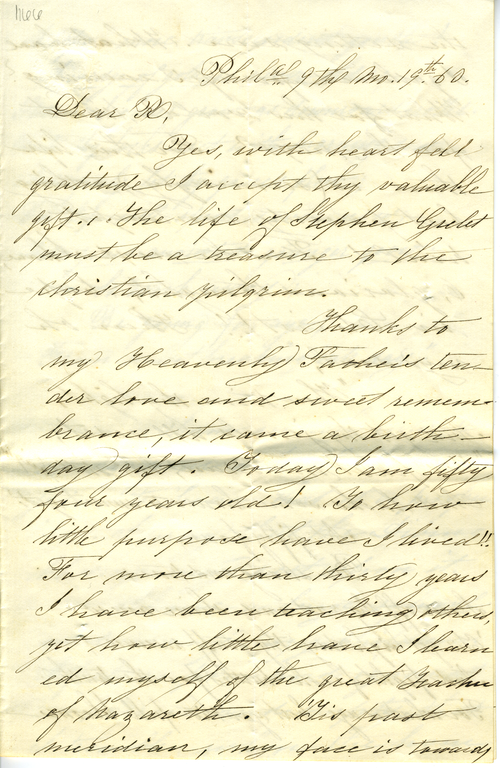 1166
Phila. 9th Mo. 19th 60.
Dear R,
Yes, with heart felt
gratitude I accept thy valuable
gift. The life of Stephen Grelet
must be a treasure to the
Christian pilgrim.
Thanks to
my Heavenly Father's ten-
der love and sweet remem-
brance, it came a birth-
day gift. Today I am fifty
four years old! To how
little purpose have I lived!!
For more than thirty years
I have been teaching others,
yet how little have I learn
ed myself of the great Teacher
of Nazareth. 'Tis past
meridian, my face is towards